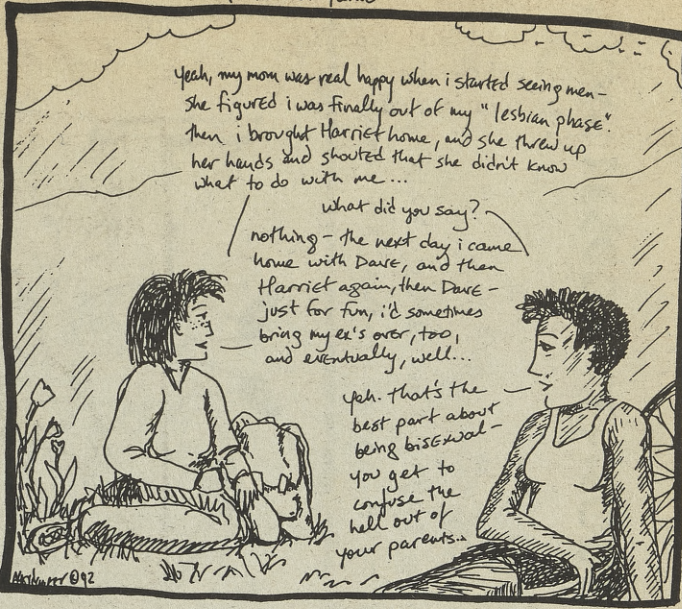 yeah, my mom was real happy when i started seeing men -
she figured i was finally out of my "lesbian phase".
then i brought Harriet home, and she threw up
her hands and shouted that she didn't know
what to do with me...
what did you say?
nothing - the next day i came
home with Dave, and then
Harriet again, then Dave -
just for fun, i'd sometimes
bring my ex's over, too,
and eventually, well...
yeh. that's the
best part about
being bisexual -
you get to
confuse the
hell out of
your parents...
©92